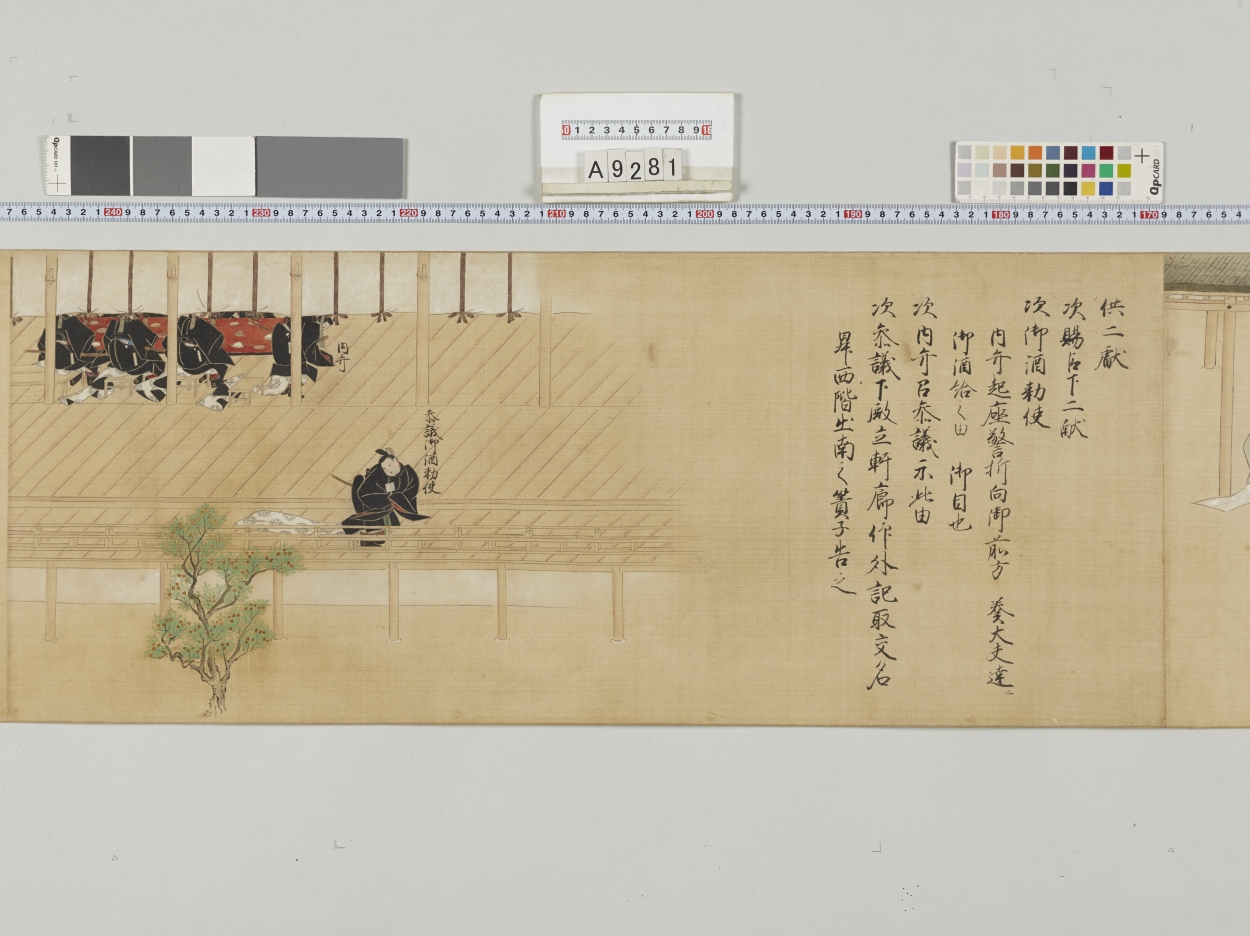 供二獻
次賜臣下二献
次御酒勅使
内弁起座警折向御前方
奏大丈達
御酒給く由　御目也
次内弁召参議示此由
次参議下殿立軒廊作外記取交名
昇西階出南之簀子告之
参議御酒勅使
内弁
A9281
QpCARD